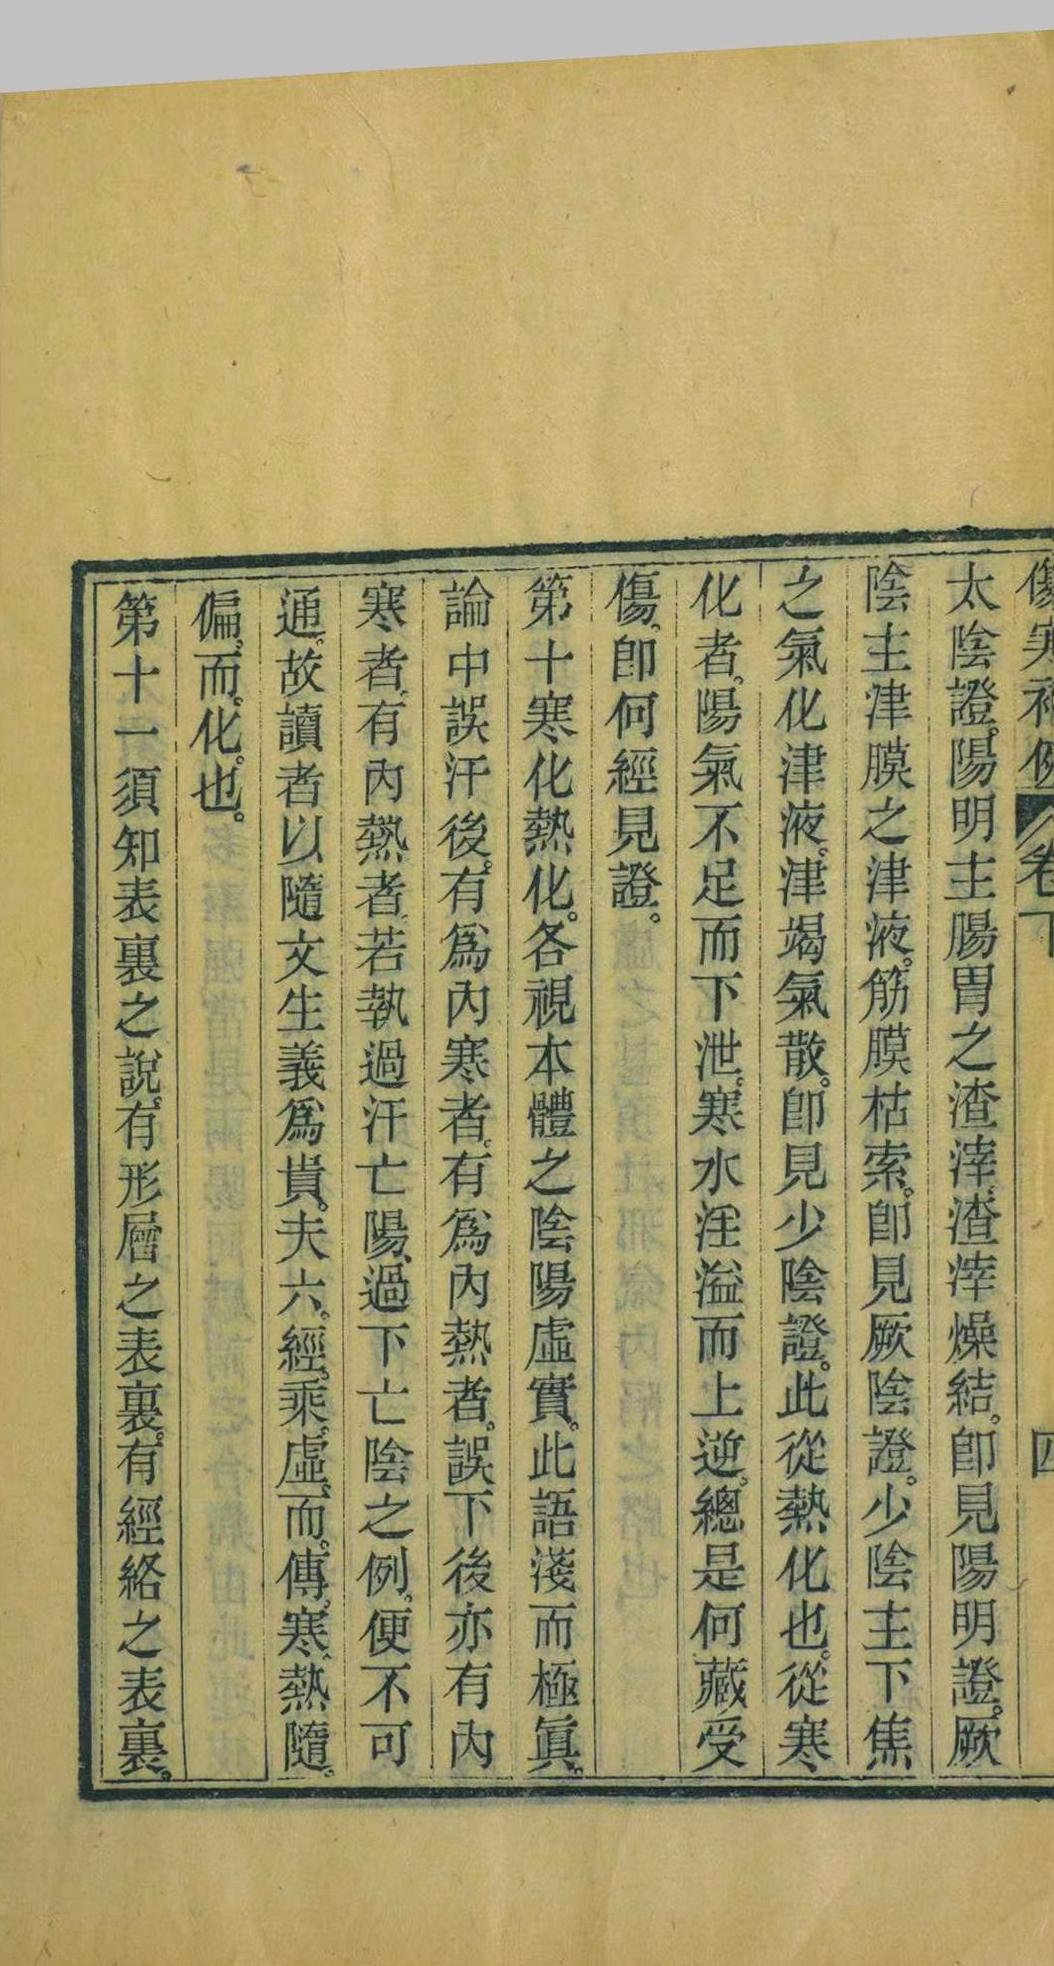 傷寒補例 卷下 四
太陰證。陽明主腸胃之渣滓、渣滓燥結。卽見陽明證。厥
陰主津膜之津液。筋膜枯索。卽見厥陰證。少陰主下焦
之氣化津液。津竭氣散。卽見少陰證。此從熱化也。從寒
化者。陽氣不足而下泄。寒水泛溢而上逆。總是何藏受
傷。卽何經見證。
第十寒化熱化。各視本體之陰陽虛實。此語淺而極眞。
論中誤汗後。有爲內寒者。有爲內熱者。誤下後亦有內
寒者。有內熱者。若執過汗亡陽、過下亡陰之例。便不可
通。故讀者以隨文生義爲貴。夫六。經。乘。虛。而。傳。寒。熱隨。
偏。而。化。也。
第十一須知表裏之說。有形層之表裏。有經絡之表裏。